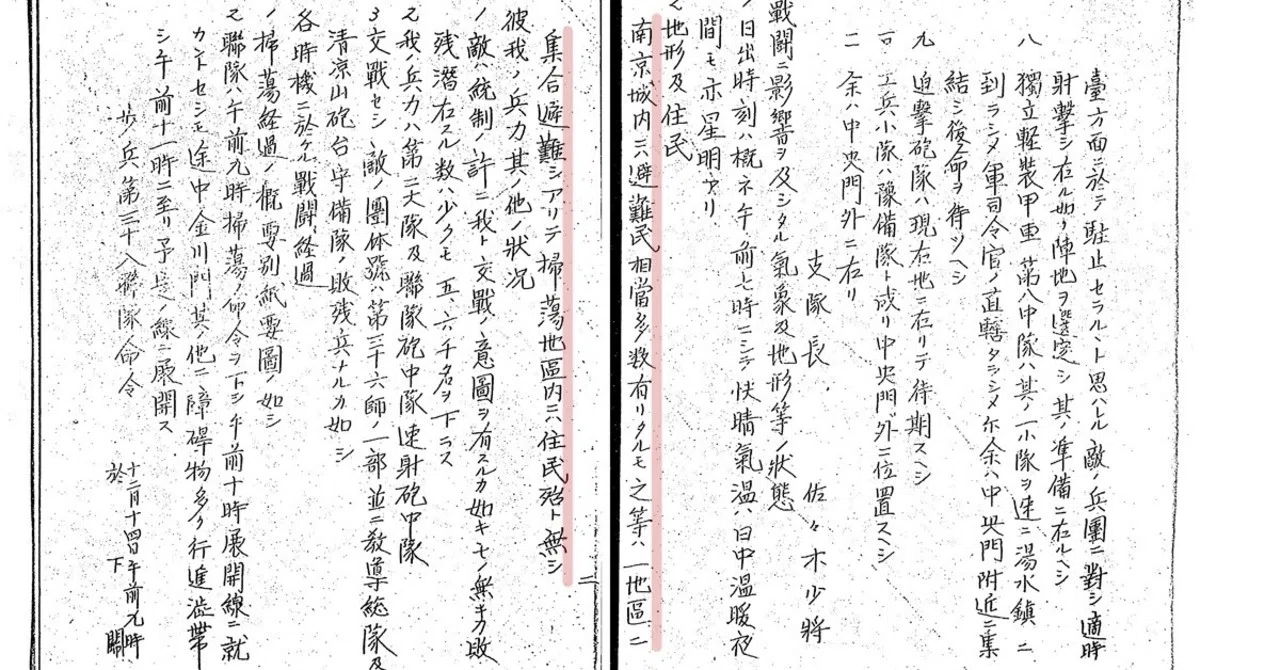 臺方面ニ於テ駐止セラルヽト思ハルル敵ノ兵團ニ對シ適時
射撃シ在ル如ク陣地ヲ選定シ其ノ準備ニ在ルヘシ
八 獨立輕装甲車第八中隊ハ其ノ一小隊ヲ速ニ湯水鎮ニ
到ラシメ軍司令官ノ直轄タラシメ尓余ハ中央門附近ニ集
結シ後命ヲ待ツヘシ
九 迫撃砲隊ハ現在地ニ在リテ待期スヘシ
工兵小隊ハ豫備隊ト成リ中央門外ニ位置スヘシ
余ハ中央門外ニ在リ
支隊長 佐々木少将
戰闘ニ影響ヲ及シタル氣象及地形等ノ状態
日出時刻ハ概ネ午前七時ニシテ快晴氣温ハ日中温暖夜
間モ亦星明アリ
地形及住民
南京城内ニハ避難民相當多数有リタルモ之等ハ一地區ニ
二
集合避難シアリテ掃蕩地區内ニハ住民殆ト無シ
彼我ノ兵力其ノ他ノ状况
敵ハ統制ノ許ニ我ト交戰ノ意圖ヲ有スルカ如キモノ無キカ敗
残潜在スル数ハ少クモ五、六千名ヲ下ラス
2 我ノ兵力ハ第二大隊及聯隊砲中隊速射砲中隊
3 交戰セシ敵ノ團体號ハ第三十六師ノ一部並ニ教導総隊及
清凉山砲台守備隊ノ敗残兵ナルカ如シ
各時機ニ於ケル戰闘経過
掃蕩経過ノ概要別紙要圖ノ如シ
2 聯隊ハ午前九時掃蕩ノ命令ヲ下シ午前十時展開線ニ就
カントセシモ途中金川門其ノ他ニ障碍物多ク行進渋滞
シ午前十一時ニ至リ予定ノ線ニ展開ス
歩兵第三十八聯隊命令 十二月十四日午前九時
於 下關